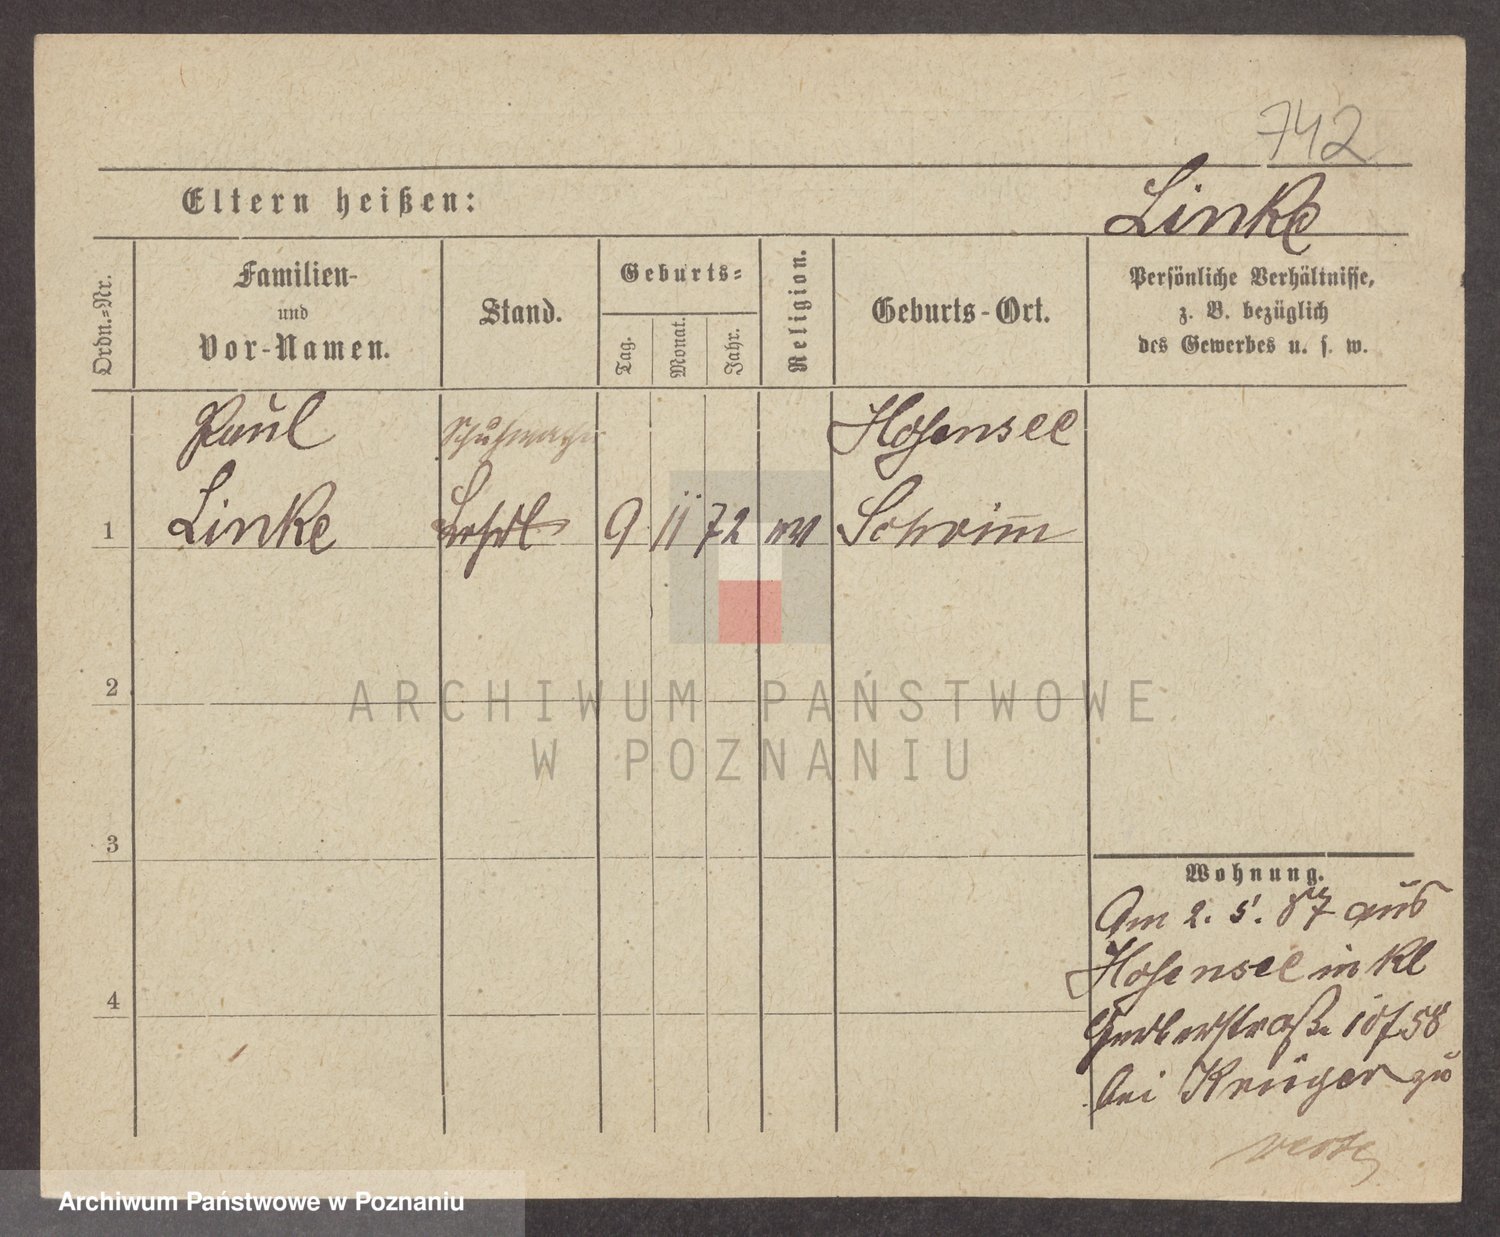 742
Eltern heißen:
Linke
Ordn.-Nr.
Familien-
und
Vor-Namen.
Stand.
Geburts-
Tag.
Monat.
Jahr.
Religion.
Geburts-Ort.
Persönliche Verhältnisse,
z. B. bezüglich
des Gewerbes u. s. w.
Paul
Schuhmacher
Hohensee
1
Linke
Lehrl
9
11
72
ev
Schrimm
2
ARCHIWUM PAŃSTWOWE
W POZNANIU
3
Wohnung.
Am 2. 5. 87 aus
Hohensee in Kl
Gerberstraße 58
bei Krüger zu
4
Archiwum Państwowe w Poznaniu